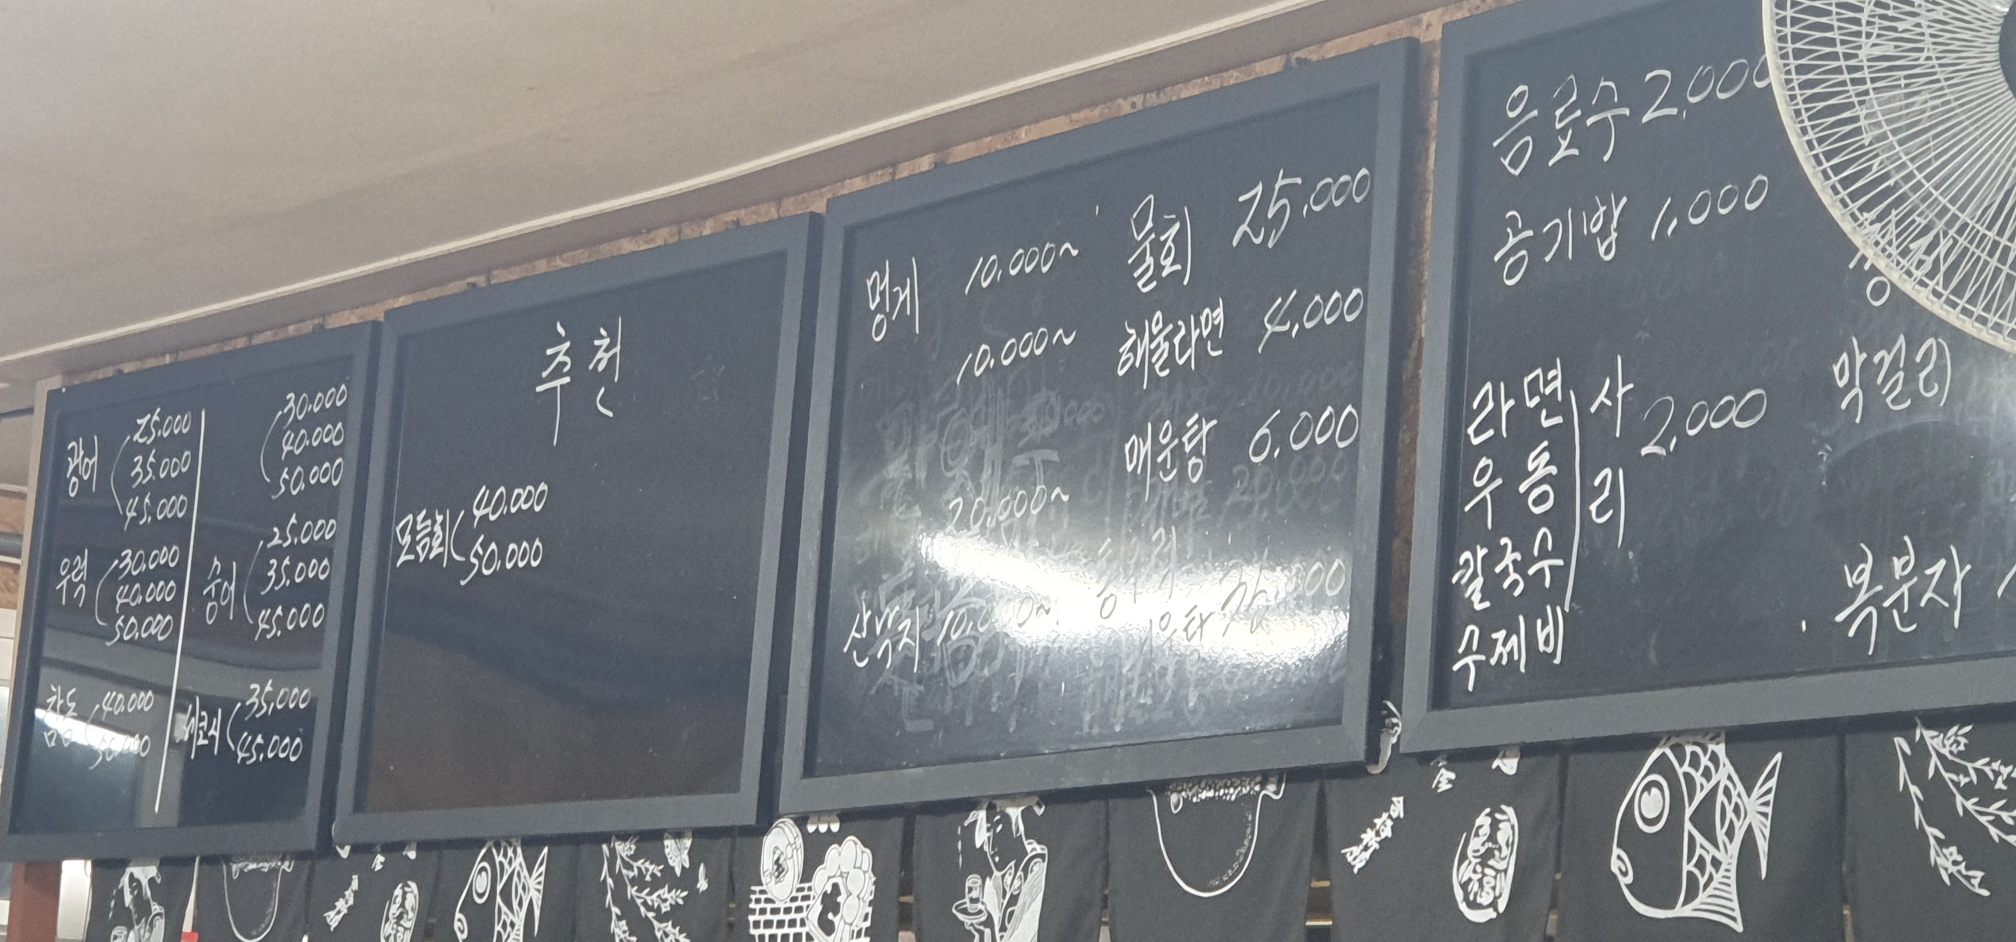 광어 25,000
35,000
45,000
우럭 30,000
40,000
50,000
참돔 40,000
50,000
30,000
40,000
50,000
숭어 25,000
35,000
45,000
세코시 35,000
45,000
추천
모듬회 40,000
50,000
멍게 10,000~
10,000~
20,000~
산낙지 10,000~
물회 25,000
해물라면 4,000
매운탕 6,000
음료수 2,000
공기밥 1,000
라면 사리 2,000
우동
칼국수
수제비
막걸리
복분자